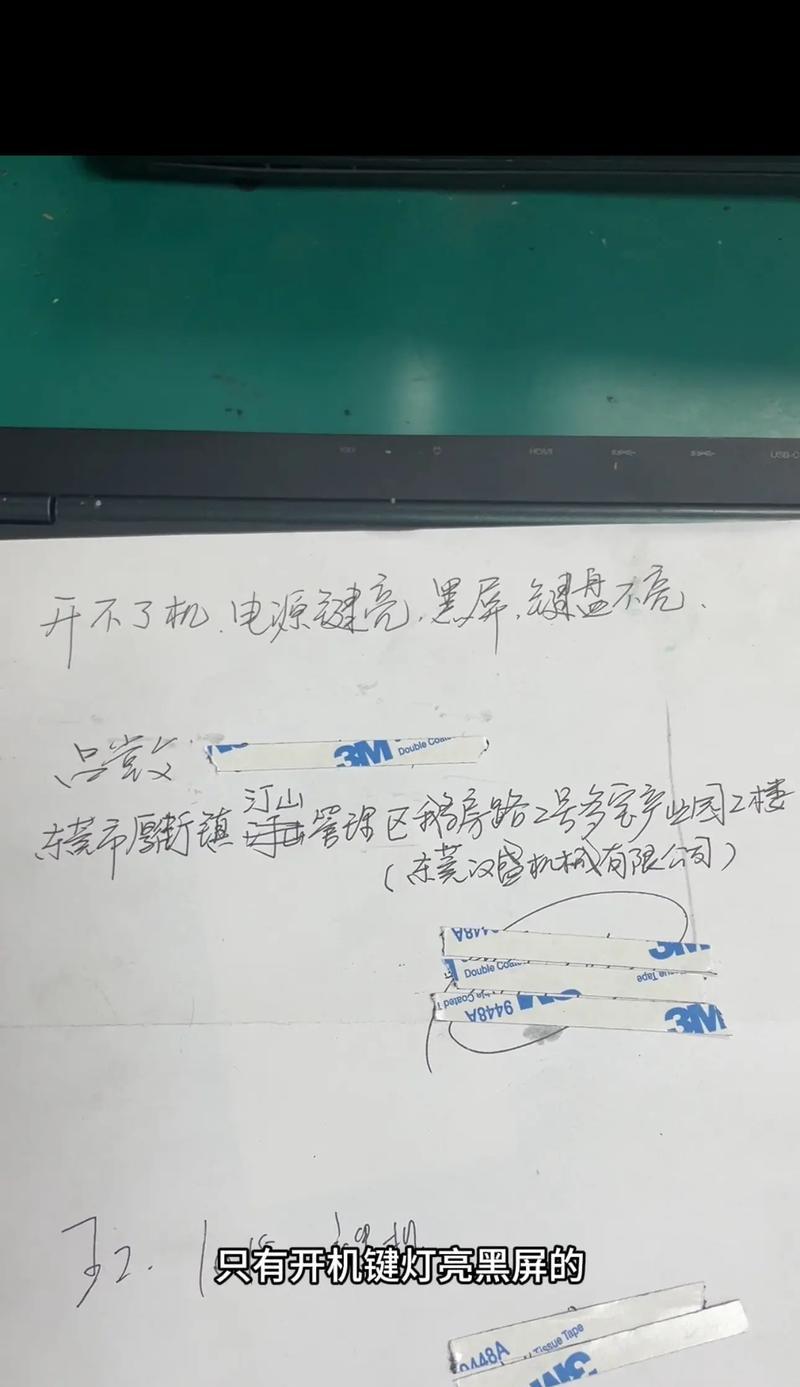 HDMI
USB-C
开不了机.电源键亮.黑屏.键盘不亮.
吕党文
3M Double Coa
汀山
东莞市厚街镇 管理区鹅房路2号多宝产业园2楼
(东莞汉盛机械有限公司)
9448A
Double Coa 3M
Tissue Tape
Double Coated T
9448A 3M
只有开机键灯亮黑屏的
9448A Tissue Tape
3M